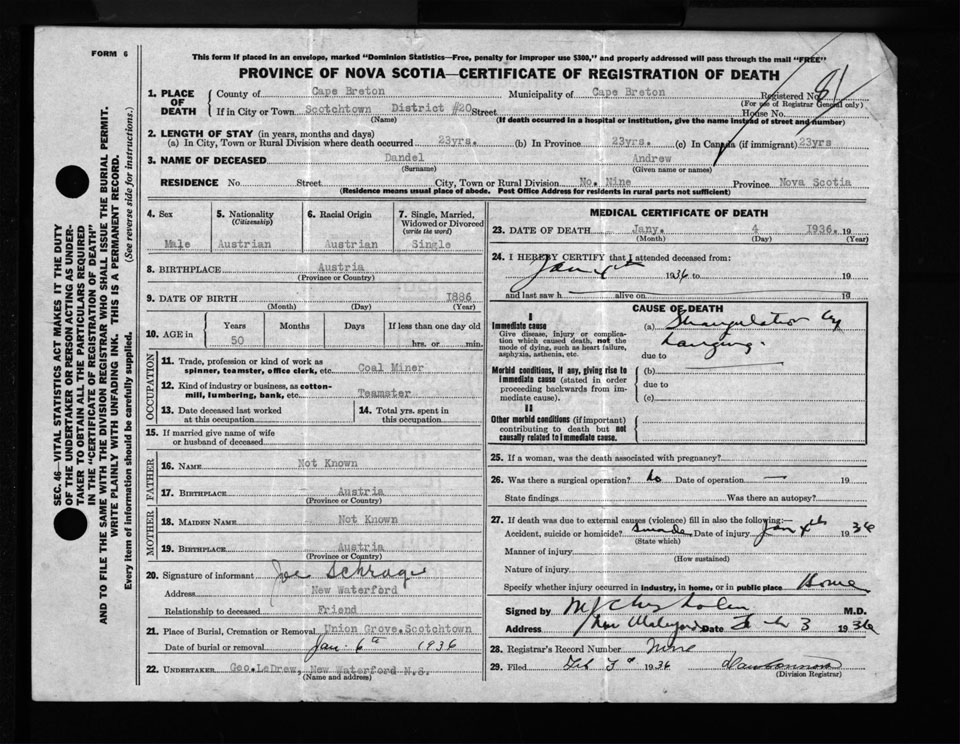 FORM 6
This form if placed in an envelope, marked "Dominion Statistics—Free, penalty for improper use $300," and properly addressed will pass through the mail "FREE"
PROVINCE OF NOVA SCOTIA—CERTIFICATE OF REGISTRATION OF DEATH
SEC. 46—VITAL STATISTICS ACT MAKES IT THE DUTY
OF THE UNDERTAKER OR PERSON ACTING AS UNDER-
TAKER TO OBTAIN ALL THE PARTICULARS REQUIRED
IN THE "CERTIFICATE OF REGISTRATION OF DEATH"
AND TO FILE THE SAME WITH THE DIVISION REGISTRAR WHO SHALL ISSUE THE BURIAL PERMIT.
WRITE PLAINLY WITH UNFADING INK. THIS IS A PERMANENT RECORD.
Every item of information should be carefully supplied. (See reverse side for instructions.)
1. PLACE OF DEATH
County of Cape Breton Municipality of Cape Breton Registered No. 81
(For use of Registrar General only)
If in City or Town Scotchtown District #20 Street House No.
(Name) (If death occurred in a hospital or institution, give the name instead of street and number)
2. LENGTH OF STAY (in years, months and days)
(a) In City, Town or Rural Division where death occurred 23yrs. (b) In Province 23yrs. (c) In Canada (if immigrant) 23yrs
3. NAME OF DECEASED Dandel Andrew
(Surname) (Given name or names)
RESIDENCE No Street City, Town or Rural Division No. Nine Province Nova Scotia
(Residence means usual place of abode. Post Office Address for residents in rural parts not sufficient)
4. Sex
Male
5. Nationality
(Citizenship)
Austrian
6. Racial Origin
Austrian
7. Single, Married,
Widowed or Divorced
(write the word)
Single
8. BIRTHPLACE Austria
(Province or Country)
9. DATE OF BIRTH 1886
(Month) (Day) (Year)
10. AGE in Years Months Days If less than one day old
50 hrs. or min.
OCCUPATION
11. Trade, profession or kind of work as
spinner, teamster, office clerk, etc. Coal Miner
12. Kind of industry or business, as cotton-
mill, lumbering, bank, etc. Teamster
13. Date deceased last worked
at this occupation
14. Total yrs. spent in
this occupation
15. If married give name of wife
or husband of deceased
FATHER
16. NAME Not Known
17. BIRTHPLACE Austria
(Province or Country)
MOTHER
18. MAIDEN NAME Not Known
19. BIRTHPLACE Austria
(Province or Country)
20. Signature of informant Joe Schrage
Address New Waterford
Relationship to deceased Friend
21. Place of Burial, Cremation or Removal Union Grove. Scotchtown
Date of burial or removal Jan. 6th 1936
22. UNDERTAKER Geo. LeDrew, New Waterford N.S.
(Name and address)
MEDICAL CERTIFICATE OF DEATH
23. DATE OF DEATH Jany. 4 1936. 19
(Month) (Day) (Year)
24. I HEREBY CERTIFY that I attended deceased from:
Jan 4th 1936 to 19
and last saw h alive on 19
CAUSE OF DEATH
I
Immediate cause
Give disease, injury or complica-
tion which caused death, not the
mode of dying, such as heart failure,
asphyxia, asthenia, etc.
(a) Strangulation by
hanging.
due to
Morbid conditions, if any, giving rise to
immediate cause (stated in order
proceeding backwards from im-
mediate cause).
(b)
due to
(c)
II
Other morbid conditions (if important)
contributing to death but not
causally related to immediate cause.
25. If a woman, was the death associated with pregnancy?
26. Was there a surgical operation? No Date of operation — 19
State findings Was there an autopsy?
27. If death was due to external causes (violence) fill in also the following:—
Accident, suicide or homicide? Suicide Date of injury Jan 4th 1936
(State which)
Manner of injury
(How sustained)
Nature of injury
Specify whether injury occurred in industry, in home, or in public place Home
Signed by M.D.
Address New Waterford Date Feb 3 1936
28. Registrar's Record Number None
29. Filed Feb 1936
(Division Registrar)